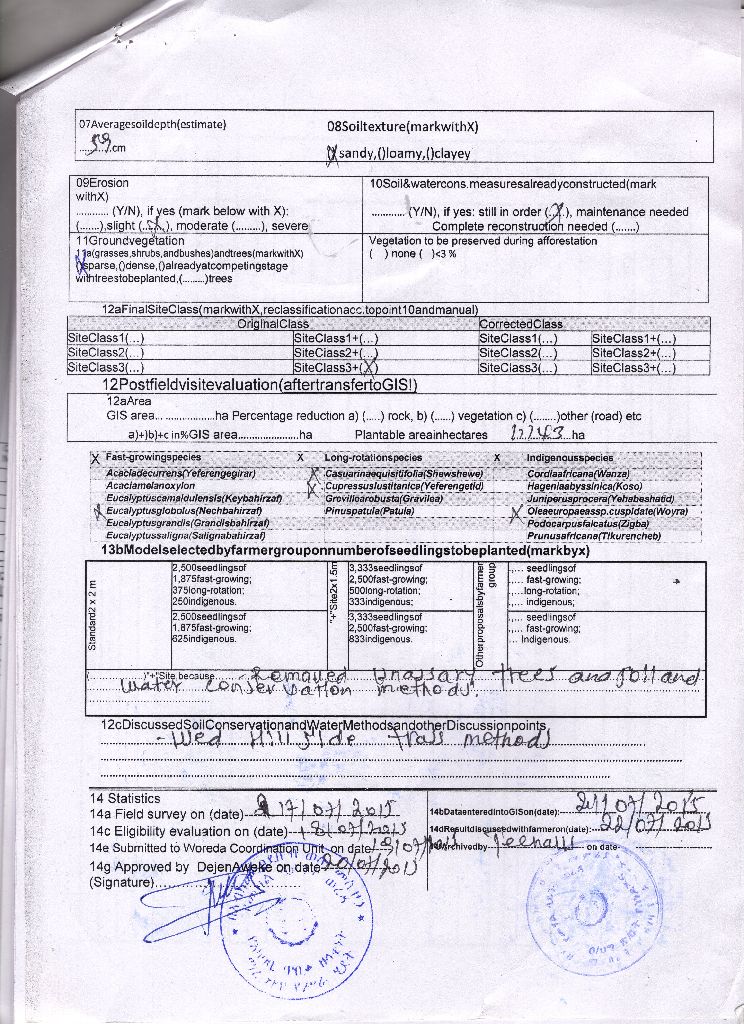 07Averagesoildepth(estimate)
08Soiltexture(markwithX)
59 cm
(X)sandy,()loamy,()clayey
09Erosion
withX)
............ (Y/N), if yes (mark below with X):
(......),slight (..X..), moderate (.........), severe
10Soil&watercons.measuresalreadyconstructed(mark
............ (Y/N), if yes: still in order (.X.), maintenance needed
Complete reconstruction needed (.......)
11Groundvegetation
11a(grasses,shrubs,andbushes)andtrees(markwithX)
(X)sparse,()dense,()alreadyatcompetingstage
withtreestobeplanted,(........)trees
Vegetation to be preserved during afforestation
( ) none ( )<3 %
12aFinalSiteClass(markwithX,reclassificationacc.topoint10andmanual)
OriginalClass CorrectedClass
SiteClass1(...) SiteClass1+(...) SiteClass1(...) SiteClass1+(...)
SiteClass2(...) SiteClass2+(...) SiteClass2(...) SiteClass2+(...)
SiteClass3(...) SiteClass3+(X) SiteClass3(...) SiteClass3+(...)
12Postfieldvisitevaluation(aftertransfertoGIS!)
12aArea
GIS area... ...............ha Percentage reduction a) (.....) rock, b) (......) vegetation c) (........)other (road) etc
a)+)b)+c in%GIS area......................ha Plantable areainhectares 1.2243 ha
X Fast-growingspecies X Long-rotationspecies X Indigenousspecies
Acaciadecurrens(Yeferengegirar) X Casuarinaequisitifolia(Shewshewe) Cordiaafricana(Wanza)
Acaciamelanoxylon X Cupressuslustitanica(Yeferengetid) Hageniaabyssinica(Koso)
Eucalyptuscamaldulensis(Keybahirzaf) Grevillearobusta(Gravilea) Juniperusprocera(Yehabeshatid)
X Eucalyptusglobolus(Nechbahirzaf) Pinuspatula(Patula) X Oleaeuropaeassp.cuspidate(Woyra)
Eucalyptusgrandis(Grandisbahirzaf) Podocarpusfalcatus(Zigba)
Eucalyptussaligna(Salignabahirzaf) Prunusafricana(Tikurencheb)
13bModelselectedbyfarmergrouponnumberofseedlingstobeplanted(markbyx)
Standard2 x 2 m
2,500seedlingsof
1,875fast-growing;
375long-rotation;
250indigenous.
2.500seedlingsof
1.875fast-growing;
625indigenous.
"+"Site2x1.5m
3,333seedlingsof
2,500fast-growing;
500long-rotation;
333indigenous;
3,333seedlingsof
2,500fast-growing;
833indigenous.
Otherproposalsbyfarmer
group
,,... seedlingsof
.... fast-growing;
,,...long-rotation;
,,... indigenous;
,,... seedlingsof
.... fast-growing;
... Indigenous.
(............)"+"Site,because Removed unassary trees and soil and
water conservation methods.
12cDiscussedSoilConservationandWaterMethodsandotherDiscussionpoints
- Wed Hillside trass methods
14 Statistics
14a Field survey on (date) 17/07/2015
14bDataenteredintoGISon(date): 21/07/2015
14c Eligibility evaluation on (date) 18/07/2015
14dResultdiscussedwithfarmeron(date): 22/07/2015
14e Submitted to Woreda Coordination Unit on date
on date
14g Approved by DejenAweke on date 20/07/2015
(Signature)